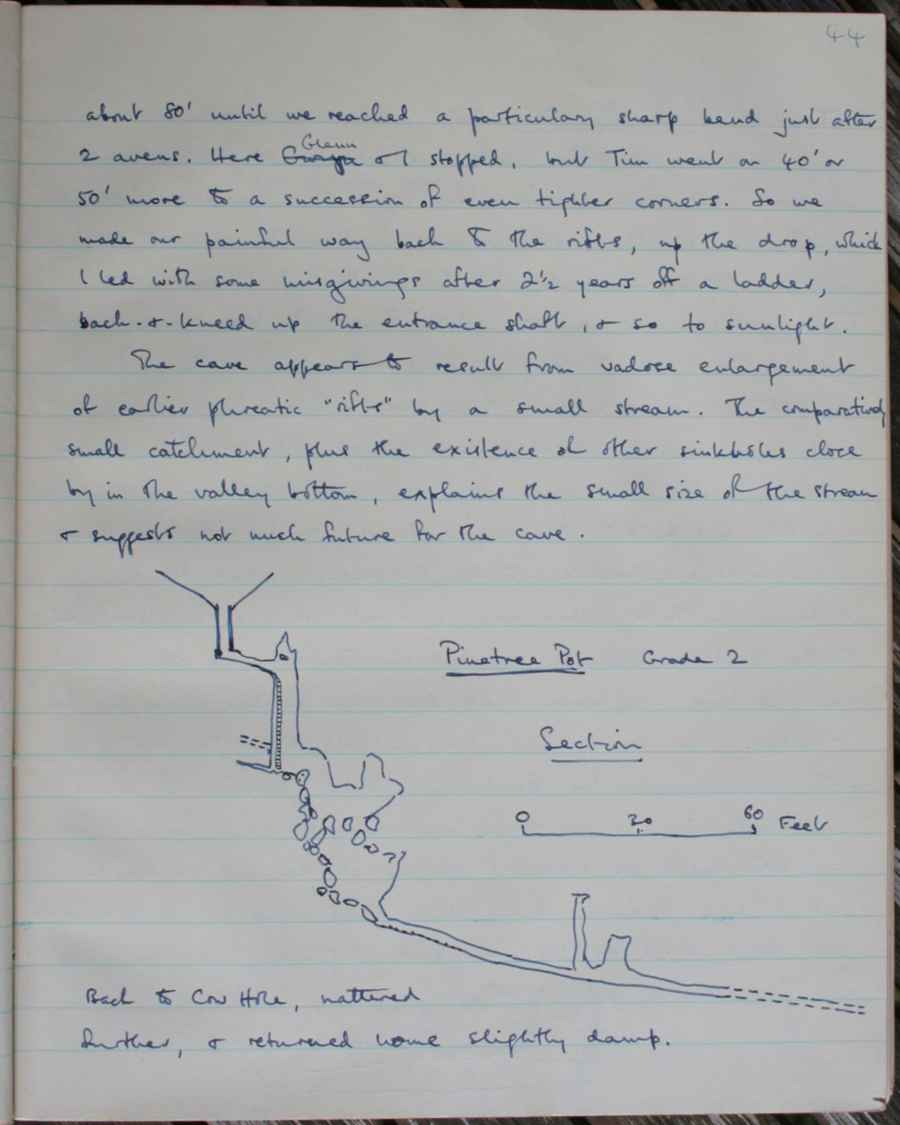 44
about 80' until we reached a particulary sharp bend just after
Glenn
2 avens. Here & I stopped, but Tim went on 40' or
50' more to a succession of even tighter corners. So we
made our painful way back to the rifts, up the drop, which
I led with some misgivings after 2½ years off a ladder,
back-&-kneed up the entrance shaft, & so to sunlight.
The cave appears to result from vadose enlargement
of earlier phreatic "rifts" by a small stream. The comparatively
small catchment, plus the existence of other sinkholes close
by in the valley bottom, explains the small size of the stream
& suggests not much future for the cave.
Pinetree Pot Grade 2
Section
0 30 60 Feet
Back to Cow Hole, nattered
further, & returned home slightly damp.